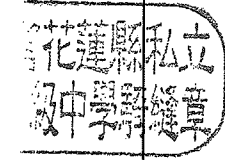 花蓮縣私立
級中學騎縫章